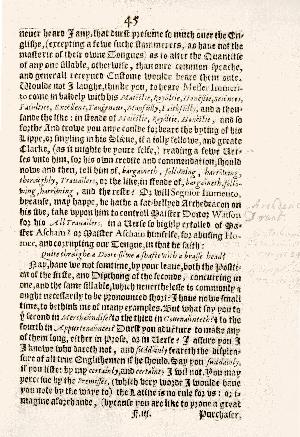 45
never heard I any, that durst presume so much ouer the En-
glishe, (excepting a fewe suche stammerers, as haue not the
masterie of their owne Tongues) as to alter the Quantitie
of any one sillable, otherwise, than oure common speache,
and generall receyued Custome woulde beare them oute.
Woulde not I laughe, thinke you, to heare Messer Immeri-
to come in baldely with his Maiēstie, Royāltie, Honēstie, Sciēnces,
Facūlties, Excēllent, Tauērnour, Manfūlly, Faithfūlly, and a thou-
sande the like: in steade of Maiĕstie, Royăltie, Honĕstie, and so
forthe. And trowe you anye coulde forbeare the byting of his
Lippe, or smyling in his Sleeue, if a iolly fellowe, and greate
Clarke, (as it mighte be youre selfe,) reading a fewe Ver-
ses vnto him, for his own credite and commendation, should
nowe and then, tell him of, bargaineth, following, harrowing,
thoroughly, Trauailers, or the like, in steade of, bargaineth, follo-
wing, harrowing, and the reste: Or will Segnior Immerito,
bycause, may happe, he hathe a fat-bellyed Archedeacon on
his syde, take vppon him to controll Maister Doctor Watson
for his All Trauailers, in a Verse so highly extolled of Ma-
ster Ascham? or Maister Ascham himselfe, for abusing Ho-
mer, and corrupting our Tongue, in that he saith:
Quite throughe a Doore flewe a shafte with a brasse head?
Nay, haue we not somtime, by your leaue, both the Positi-
on of the firste, and Dipthong of the seconde, concurring in
one, and the same sillable, which neuerthelesse is commonly &
ought necessarily to be pronounced short? I haue nowe small
time, to bethink me of many examples. But what say you to
the second in Merchaundise? to the third in Couenaunteth? & to the
fourth in Appurtenaunces? Durst you aduenture to make any
of them long, either in Prose, or in Verse? I assure you I
knowe who dareth not, and suddainly feareth the displea-
sure of all true Englishemen if he should. Say you suddainly,
if you liste: by my certainly, and certainty I wil not. You may
perceiue by the Premisses, (which very worde I woulde haue
you note by the waye to) the Latine is no rule for vs: or
imagine aforehand, (bycause you are like to proue a great
F.iij. Purchaser,